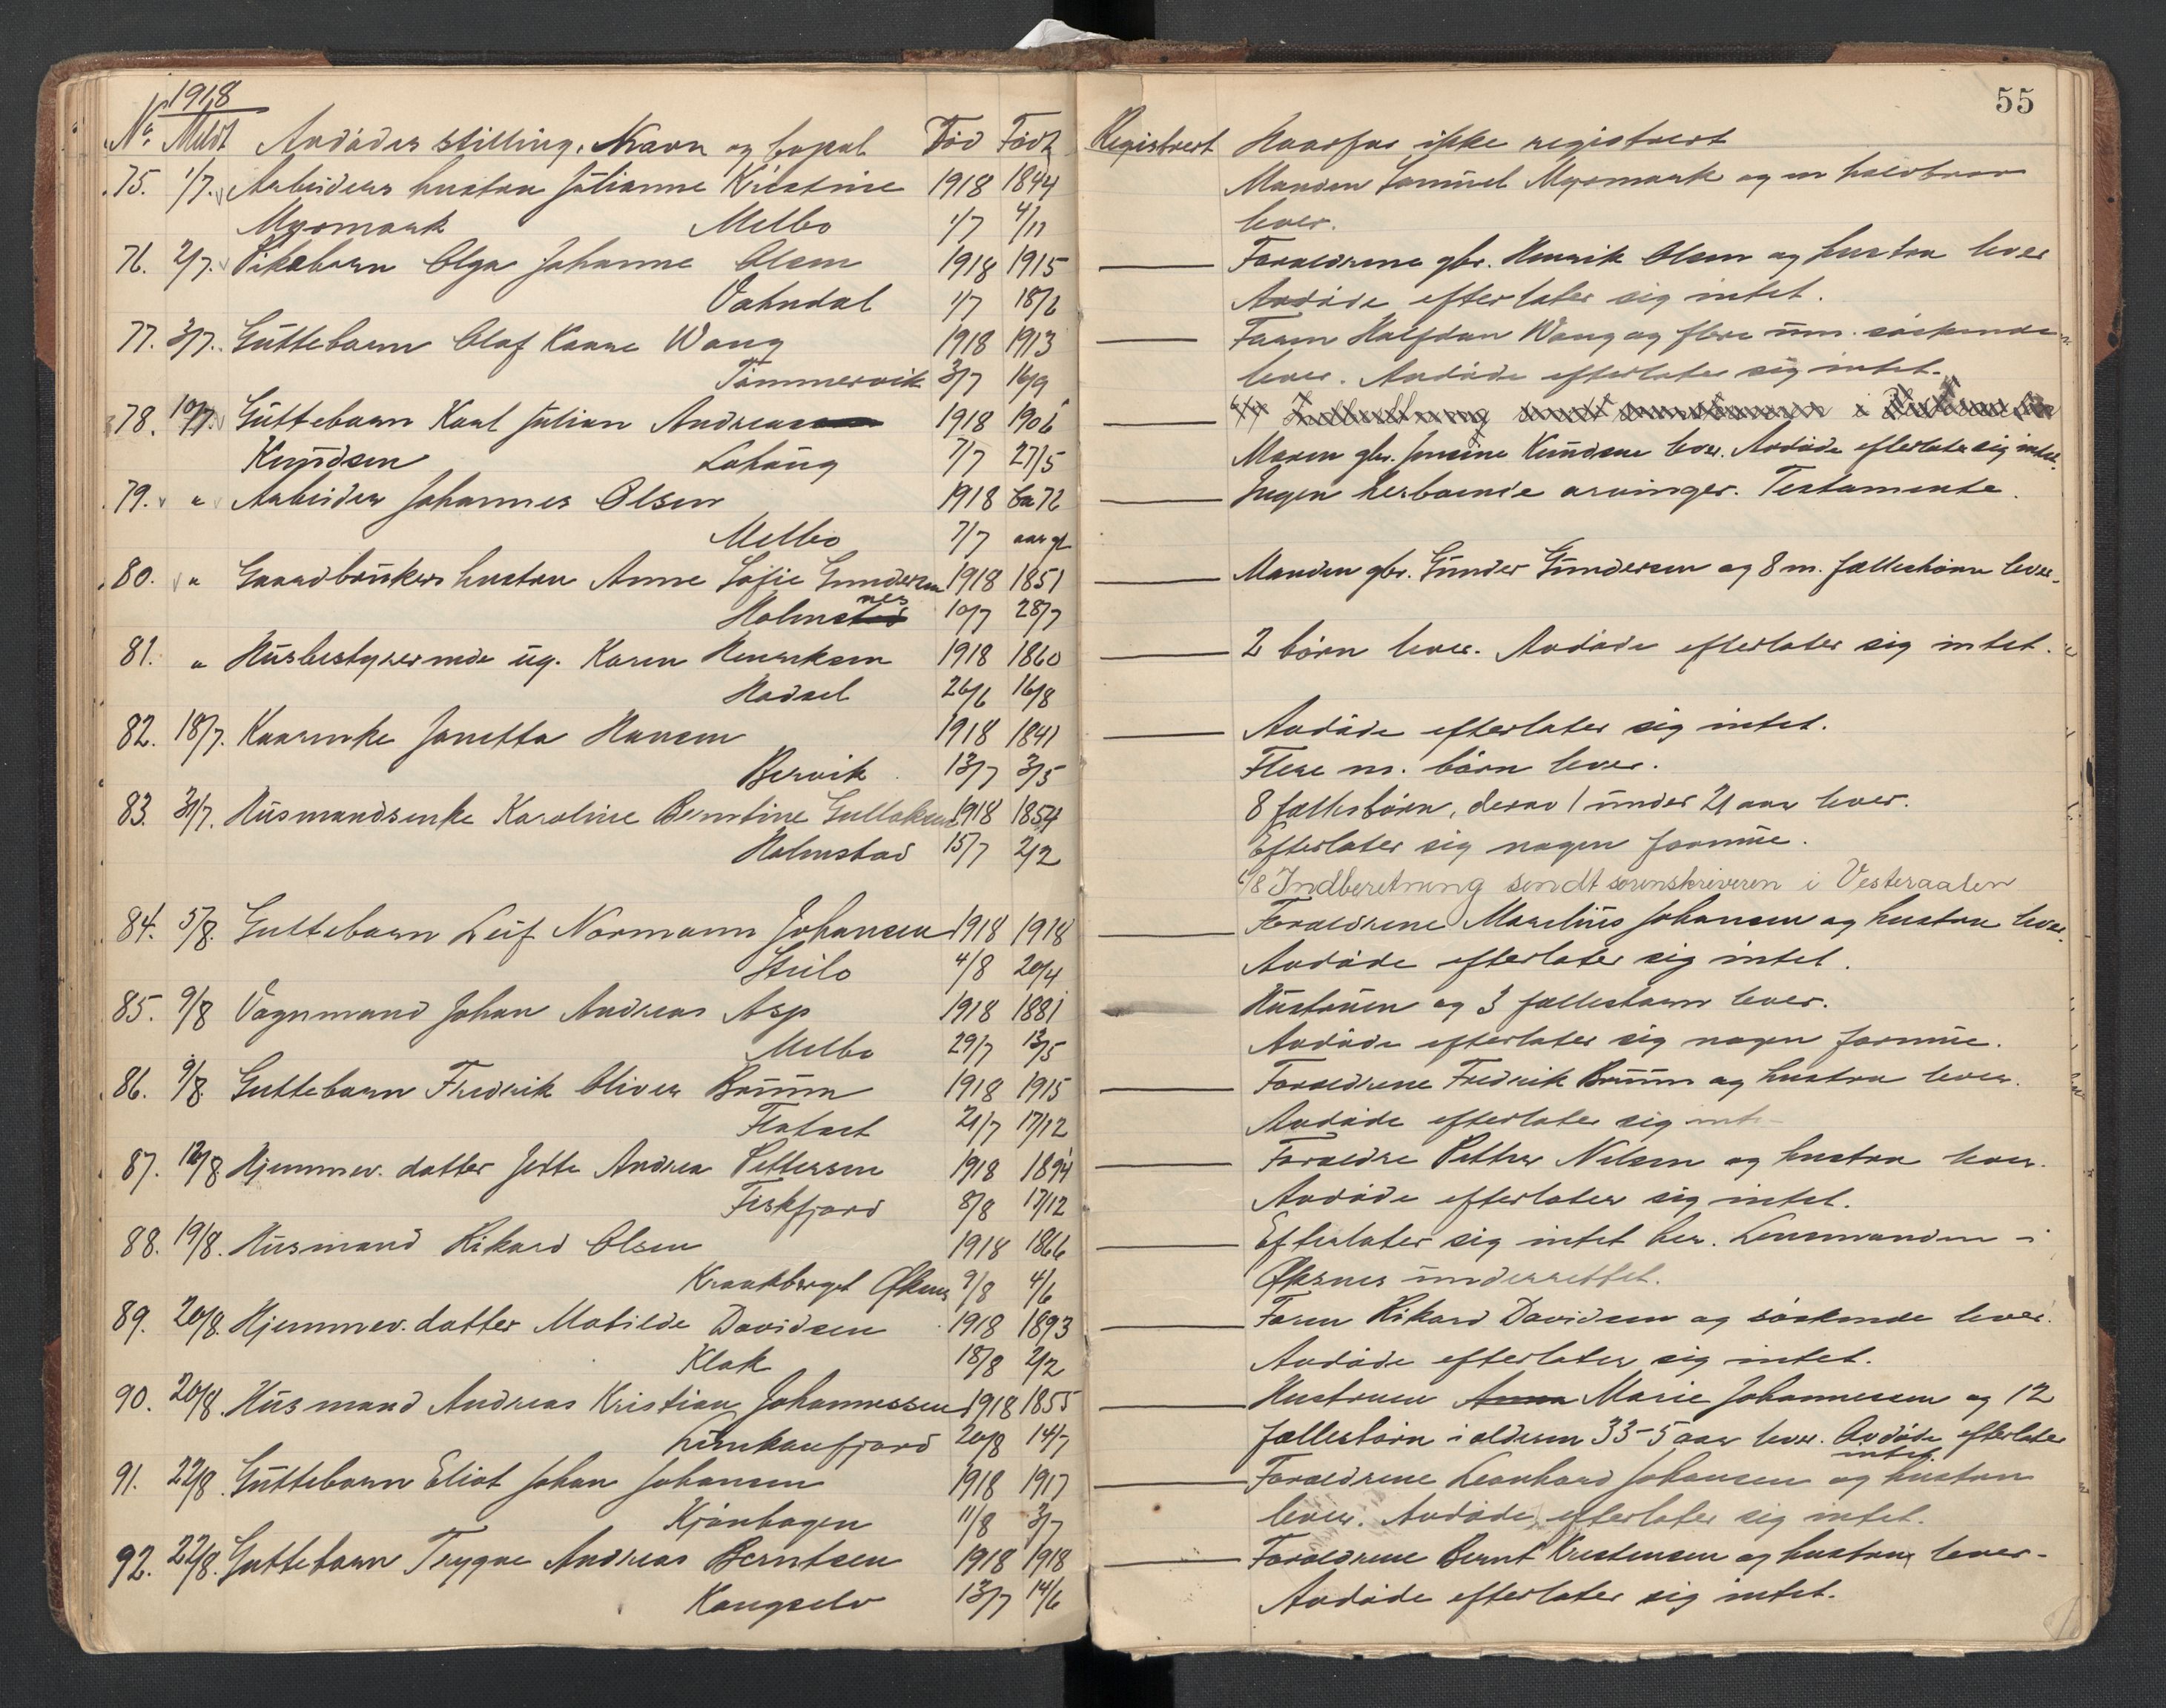 1918
No. Meldt Avdødes stilling, Navn og bopæl Død Født
75. 1/7. Arbeiders hustru Julianne Kristine 1918 1844
Myrmark Melbo 1/7 4/11
76. 2/7. Pikebarn Olga Johanne Olsen 1918 1915
Vahndal 1/7 18/2
77. 3/7. Guttebarn Olaf Kaare Wang 1918 1913
Tømmervik 3/7 16/9
78. 10/7. Guttebarn Karl Julian Andreas 1918 1906
Knudsen Lahaug 7/7 27/5
79. " Arbeider Johannes Olsen 1918 ca 72
Melbo 7/7 aar gl
80. " Gaardbrukers hustru Anne Sofie Gundersen 1918 1851
Holmsnes 10/7 28/7
81. " Husbestyrerinde ug. Karen Henriksen 1918 1860
Hadsel 26/6 16/8
82. 18/7. Kaarenke Janetta Hansen 1918 1841
Bervik 13/7 3/5
83. 31/7. Husmandsenke Karoline Berntine Gullaksen 1918 1854
Holmstad 15/7 2/2
84. 5/8. Guttebarn Leif Normann Johansen 1918 1918
Strilo 4/8 20/4
85. 9/8 Vognmand Johan Andreas Asp 1918 1881
Melbo 29/7 13/5
86. 9/8. Guttebarn Fredrik Oliver Bruun 1918 1915
Flatset 21/7 17/12
87. 12/8 Hjemmev. datter Jette Andrea Pettersen 1918 1894
Fiskfjord 8/8 17/12
88. 19/8. Husmand Rikard Olsen 1918 1866
Kraakberget Øksnes 9/8 4/6
89. 20/8. Hjemmev. datter Matilde Davidsen 1918 1893
Klak 18/8 2/2
90. 20/8. Husmand Andreas Kristian Johannessen 1918 1855
Lunkanfjord 20/8 14/7
91. 22/8. Guttebarn Eliot Johan Johansen 1918 1917
Kjønhagen 11/8 3/7
92. 22/8. Guttebarn Trygve Andreas Berntsen 1918 1918
Kongselv 13/7 14/6
55
Registrert Hvorfor ikke registrert
Manden Samuel Myrmark og en halvbror
lever.
Forældrene gbr. Henrik Olsen og hustru lever
Avdøde efterlater sig intet.
Faren Halfdan Wang og flere um. søskende
lever. Avdøde efterlater sig intet.
Moren gbr. Jensine Knudsen lever. Avdøde efterlater sig intet.
Ingen herboende arvinger. Testamente.
Manden gbr. Gunder Gundersen og 8 m. fællesbørn lever.
2 børn lever. Avdøde efterlater sig intet.
Avdøde efterlater sig intet.
Flere m. børn lever.
8 fællesbørn, derav 1 under 21 aar lever.
Efterlater sig nogen formue.
6/8 Indberetning sendt sorenskriveren i Vesteraalen
Forældrene Marelius Johansen og hustru lever.
Avdøde efterlater sig intet.
Hustruen og 3 fællesbarn lever.
Avdøde efterlater sig nogen formue.
Forældrene Fredrik Bruun og hustru lever.
Avdøde efterlater sig int-
Forældre Petter Nilsen og hustru lever.
Avdøde efterlater sig intet.
Efterlater sig intet her. Lensmanden i
Øksnes underrettet.
Faren Rikard Davidsen og søskende lever.
Avdøde efterlater sig intet.
Hustruen Anna Marie Johannessen og 12
fællesbørn i alderen 33-5 aar lever. Avdøde efterlater
intet
Forældrene Leonhard Johansen og hustru
lever. Avdøde efterlater sig intet.
Forældrene Bernt Kristensen og hustru lever-
Avdøde efterlater sig intet.